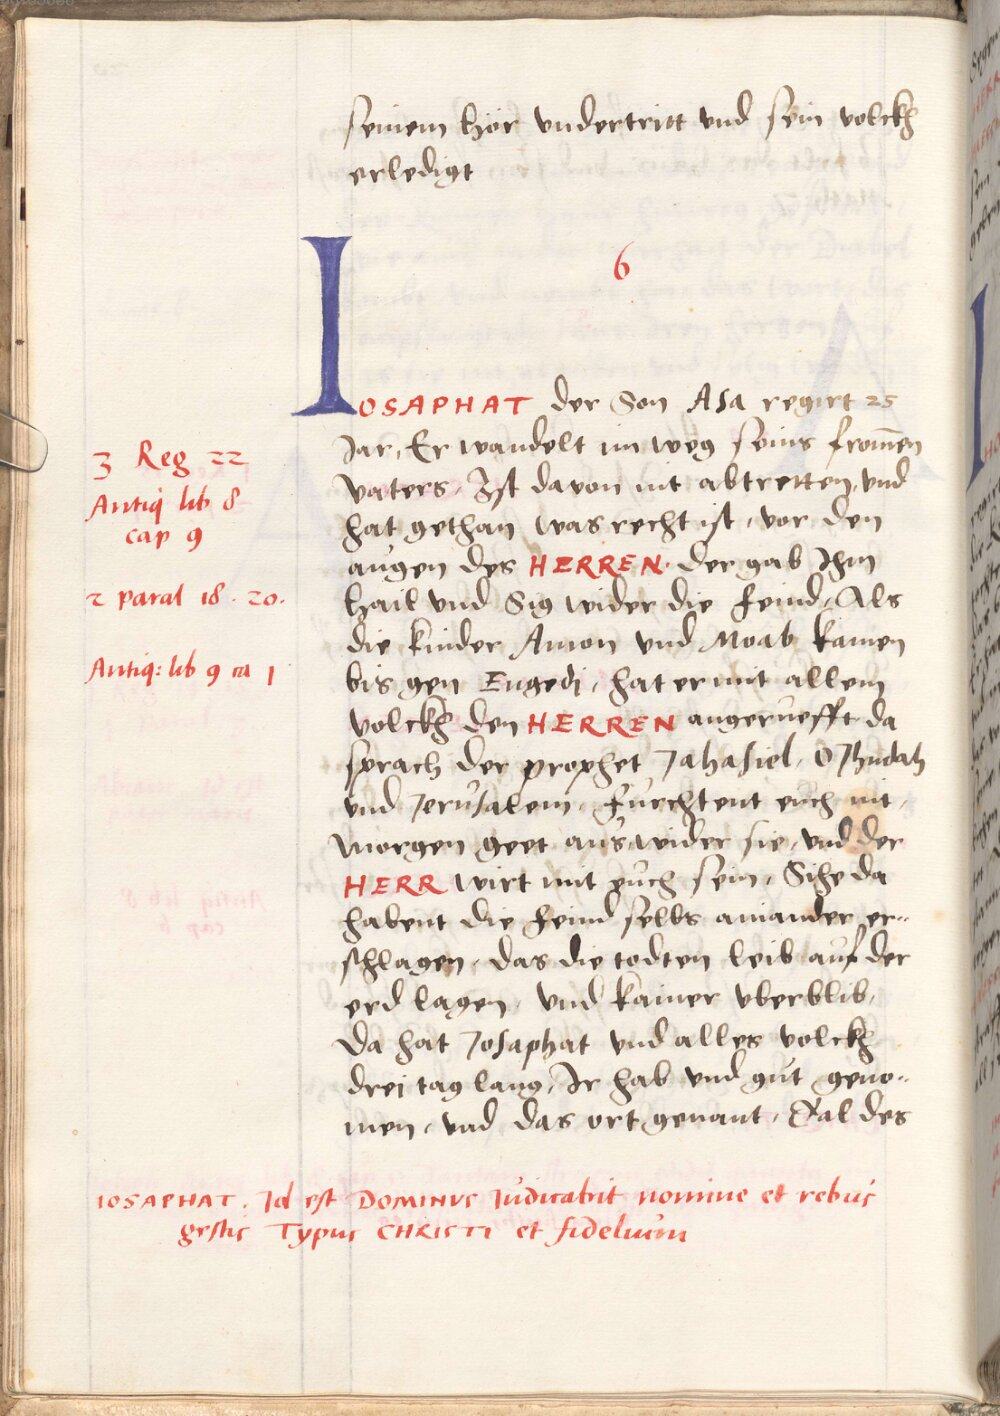 seinem hör vndertritt vnd sein volckh
erledigt
6
IOSAPHAT der Son Asa regirt 25
Jar, Er wandelt im weg seins from̄en
vaters, Ist davon nit abtretten, vnd
hat gethan was recht ist, vor den
augen des HERREN. der gab Ihm
hail vnd Sig wider die feind, Als
die kinder Amon vnd Moab kamen
bis gen Engedi, hat er mit allem
volckh den HERREN angeruefft da
sprach der prophet Jahasiel, O Jhudah
vnd Jerusalem, furchtent euch nit,
morgen geet aus wider sie, vnd der
HERR wirt mit euch sein, Sihe da
habent die feind selbs ainander er-
schlagen, das die todten leib auf der
erd lagen, vnd kainer vberblib,
Da hat Josaphat vnd alles volckh
drei tag lang, Ir hab vnd gut geno-
men, vnd das ort genant, Tal des
3 Reg 22
Antiq lib 8
cap 9
2 paral 18. 20.
Antiq: lib 9 ca 1
IOSAPHAT. Id est DOMINVS Iudicabit nomine et rebus
gestis Typus CHRISTI et fidelium